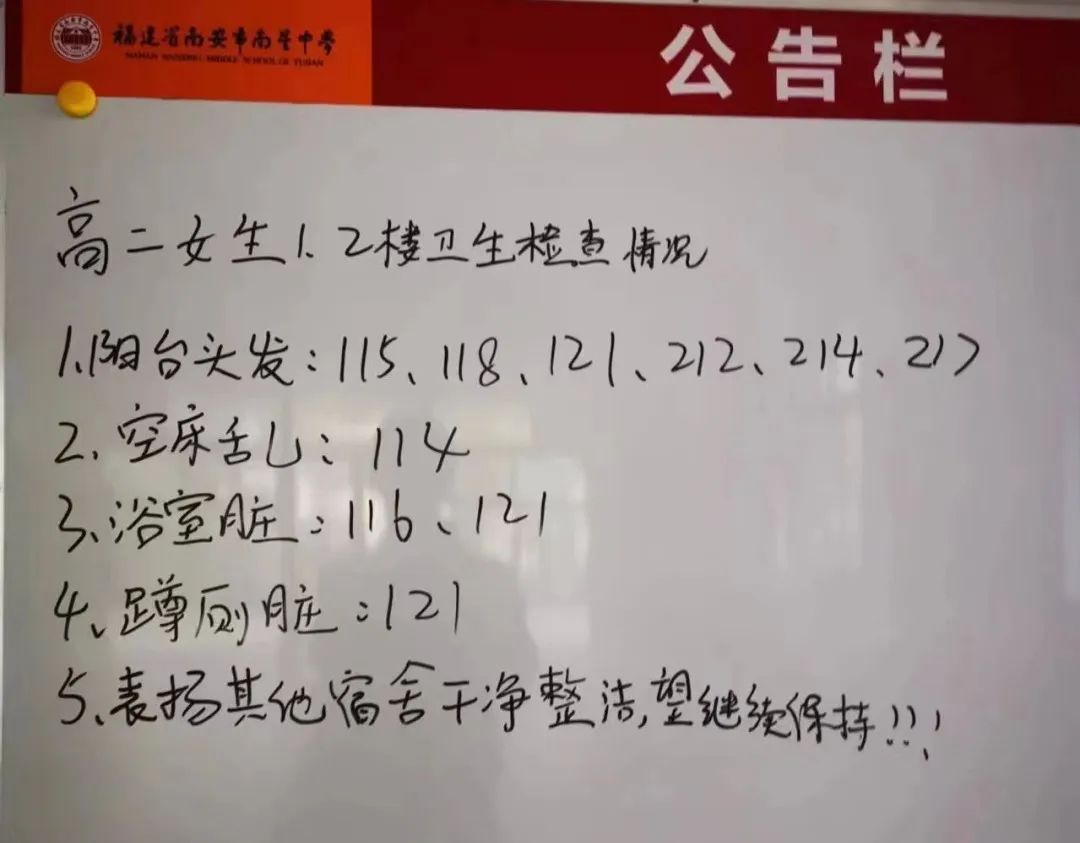 福建省南安市南星中学
公告栏
高二女生1、2楼卫生检查情况
1、阳台头发：115、118、121、212、214、217
2、空床乱：114
3、浴室脏：116、121
4、蹲厕脏：121
5、表扬其他宿舍干净整洁，望继续保持！！！